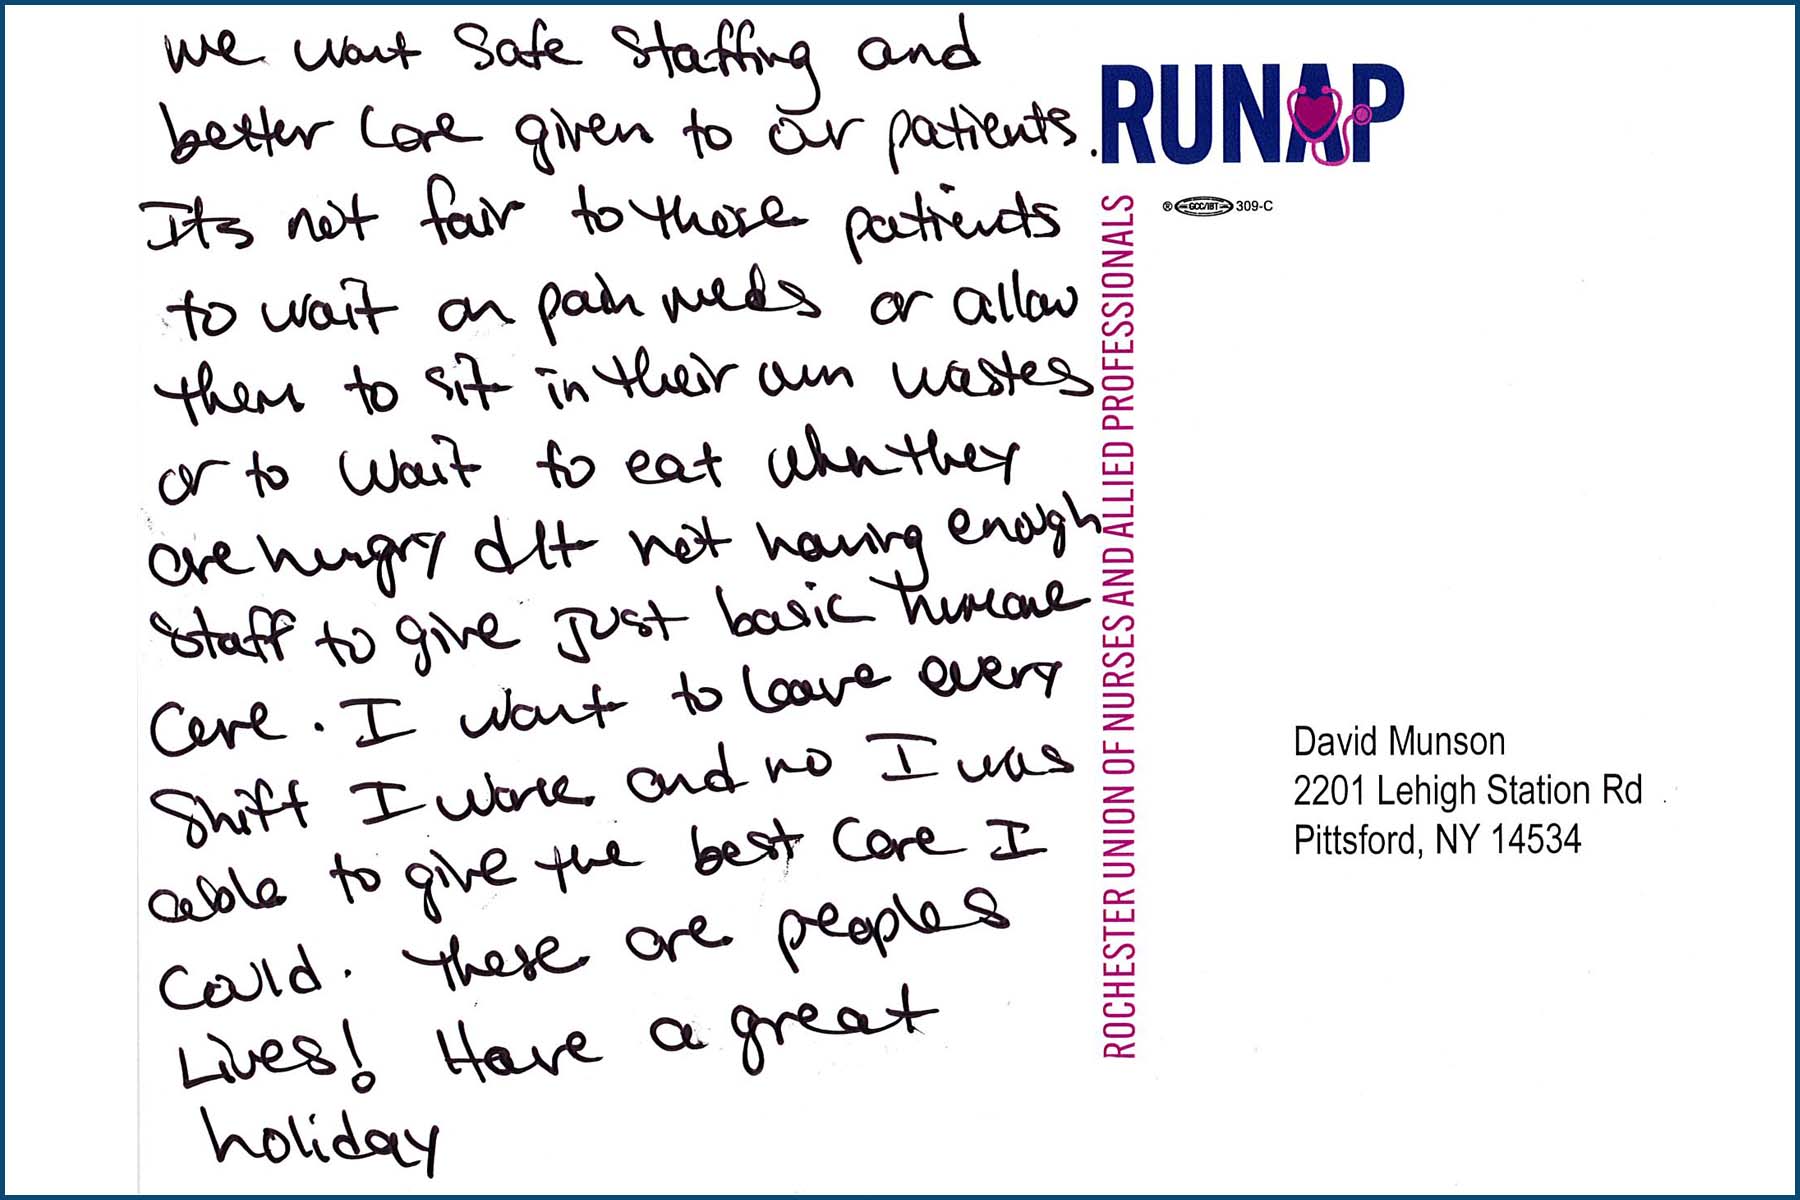 we want safe staffing and
better care given to our patients.
Its not fair to these patients
to wait on pain meds or allow
them to sit in their own wastes
or to wait to eat when they
are hungry d/t not having enough
staff to give just basic humane
care. I want to leave every
shift I work and no I was
able to give the best care I
could. These are peoples
Lives! Have a great
holiday
RUNAP
® GCC/IBT 309-C
ROCHESTER UNION OF NURSES AND ALLIED PROFESSIONALS
David Munson
2201 Lehigh Station Rd
Pittsford, NY 14534